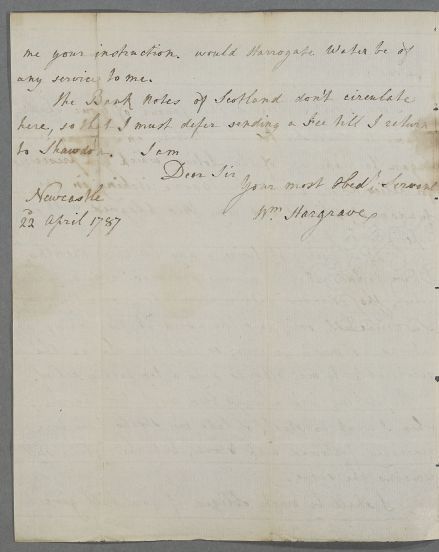 me your instruction. would Harrogate Water be of
any service to me.
The Bank Notes of Scotland don't circulate
here, so that I must defer sending a Fee till I return
to Shawdon. I am
Dear Sir
Your most Obedt Servant
Wm Hargrave
Newcastle
22d April 1787